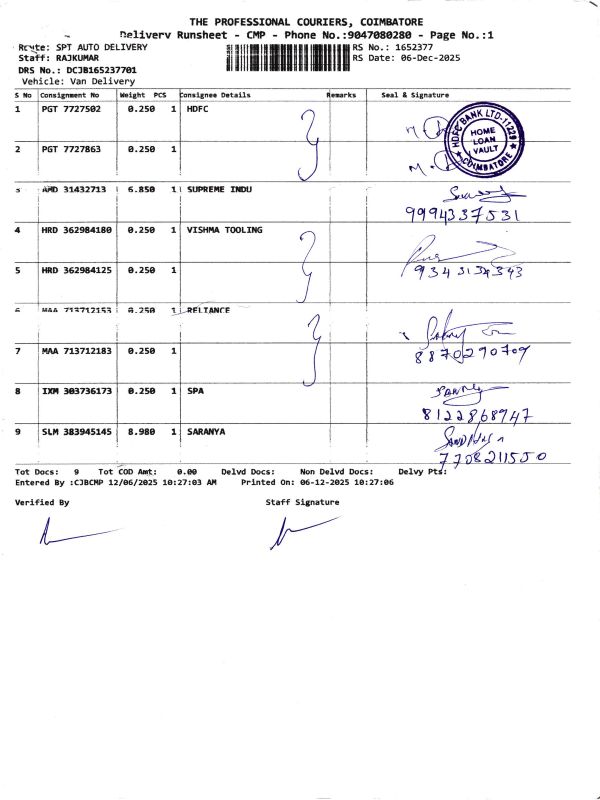 THE PROFESSIONAL COURIERS, COIMBATORE
Delivery Runsheet - CMP - Phone No.:9047080280 - Page No.:1
Route: SPT AUTO DELIVERY RS No.: 1652377
Staff: RAJKUMAR RS Date: 06-Dec-2025
DRS No.: DCJB165237701
Vehicle: Van Delivery
S No Consignment No Weight PCS Consignee Details Remarks Seal & Signature
1 PGT 7727502 0.250 1 HDFC
HDFC BANK LTD-11229
HOME
LOAN
VAULT
COIMBATORE
2 PGT 7727863 0.250 1
3 AMD 31432713 6.850 1 SUPREME INDU
9994337531
4 HRD 362984180 0.250 1 VISHMA TOOLING
5 HRD 362984125 0.250 1
6 MAA 713712153 0.250 1 RELIANCE
7 MAA 713712183 0.250 1
8870290709
8 IXM 303736173 0.250 1 SPA
8122868947
9 SLM 383945145 8.980 1 SARANYA
7708211550
Tot Docs: 9 Tot COD Amt: 0.00 Delvd Docs: Non Delvd Docs: Delvy Pts:
Entered By :CJBCMP 12/06/2025 10:27:03 AM Printed On: 06-12-2025 10:27:06
Verified By Staff Signature